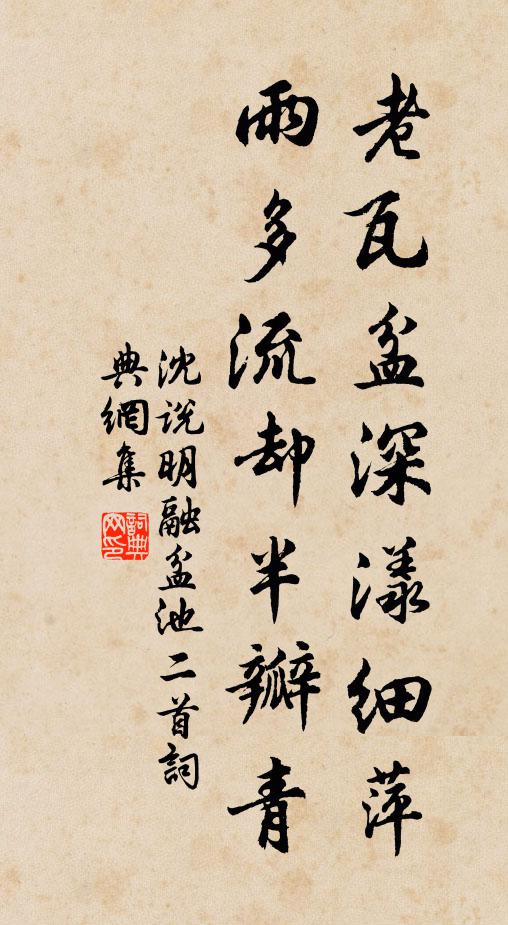 老瓦盆深漾細萍
雨多流却半瓣青
沈説明融盆池二首詞
典網集
詞典網印